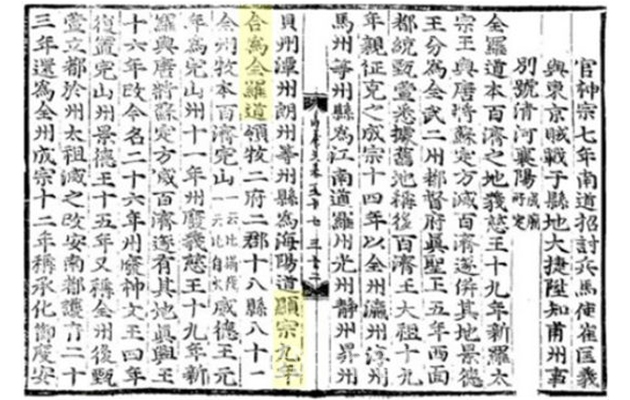 官神宗七年南道招討兵馬使崔匡義
與東京賊戰于縣地大捷陞知甫州事
別號清河襄陽成廟所定
全羅道本百濟之地義慈王十九年新羅太
宗王與唐將蘇定方滅百濟遂倂其地景德
王分爲全武二州都督府眞聖王五年西面
都統甄萱悉據舊地稱後百濟王太祖十九
年親征克之成宗十四年以全州瀛州淳州
馬州等州縣爲江南道羅州光州靜州昇州
卷五十七 三十二
貝州潭州朗州等州縣爲海陽道顯宗九年
合爲全羅道領牧二府二郡十八縣八十一
全州牧本百濟完山一云比斯伐一云比自火威德王元
年爲完山州十一年州廢義慈王十九年新
羅與唐將蘇定方滅百濟遂有其地眞興王
十六年改今名二十六年州廢神文王四年
復置完山州景德王十五年又稱全州後甄
萱立都於州太祖滅之改安南都護府二十
三年還爲全州成宗十二年稱承化節度安